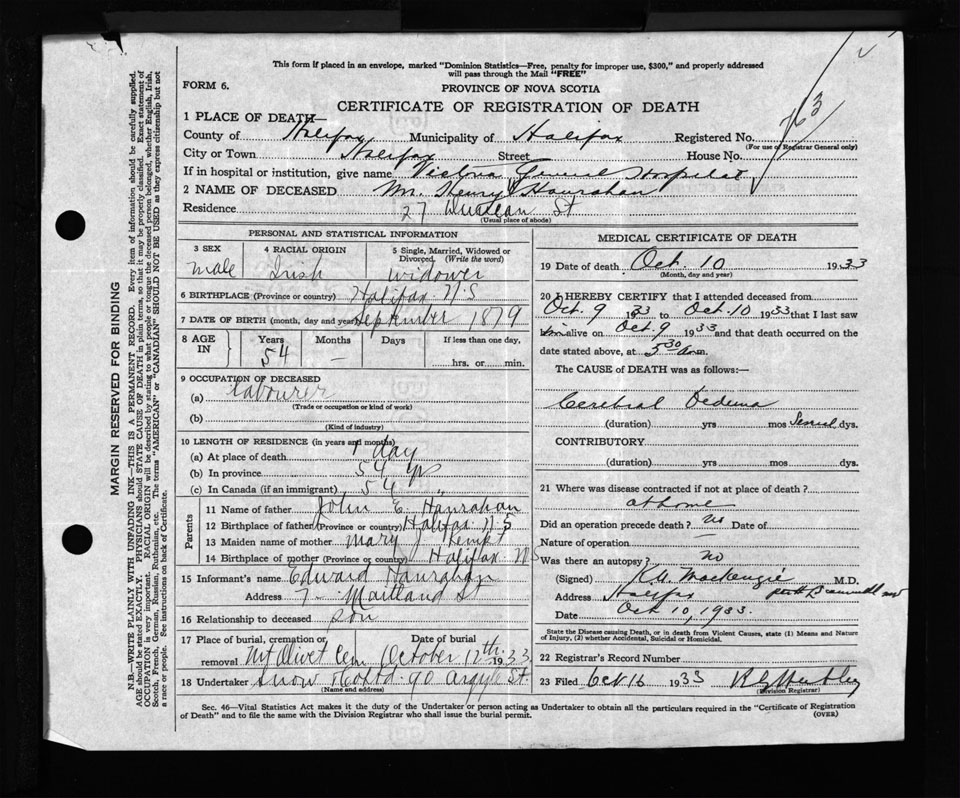 This form if placed in an envelope, marked "Dominion Statistics—Free, penalty for improper use, $300," and properly addressed
will pass through the Mail "FREE"
FORM 6.
PROVINCE OF NOVA SCOTIA
CERTIFICATE OF REGISTRATION OF DEATH
1 PLACE OF DEATH—
County of Halifax Municipality of Halifax Registered No.
(For use of Registrar General only)
763
City or Town Halifax Street House No.
If in hospital or institution, give name Victoria General Hospital
2 NAME OF DECEASED Mr. Henry Hanrahan
Residence 27 St
(Usual place of abode)
PERSONAL AND STATISTICAL INFORMATION
3 SEX 4 RACIAL ORIGIN 5 Single, Married, Widowed or Divorced. (Write the word)
Male Irish Widower
6 BIRTHPLACE (Province or country) Halifax N.S
7 DATE OF BIRTH (month, day and year) September 1879
8 AGE IN Years Months Days If less than one day,
54 — hrs. or min.
9 OCCUPATION OF DECEASED
(a) Labourer
(Trade or occupation or kind of work)
(b)
(Kind of industry)
10 LENGTH OF RESIDENCE (in years and months)
(a) At place of death 1 day
(b) In province 54 yrs
(c) In Canada (if an immigrant) 54 "
Parents
11 Name of father John E. Hanrahan
12 Birthplace of father (Province or country) Halifax N.S
13 Maiden name of mother Mary J Kempt
14 Birthplace of mother (Province or country) Halifax N.S
15 Informant's name Edward Hanrahan
Address 7 Maitland St
16 Relationship to deceased Son
17 Place of burial, cremation or removal Mt Olivet Cem Date of burial October 12th 1933
18 Undertaker Snow & Co Ltd. 90 Argyle St.
(Name and address)
MEDICAL CERTIFICATE OF DEATH
19 Date of death Oct. 10 1933
(Month, day and year)
20 I HEREBY CERTIFY that I attended deceased from
Oct. 9 1933 to Oct. 10 1933 that I last saw
him alive on Oct. 9 1933 and that death occurred on
date stated above, at 5 30 a.m.
The CAUSE of DEATH was as follows:—
Cerebral Oedema
(duration) yrs mos Several dys.
CONTRIBUTORY
(duration) yrs mos dys.
21 Where was disease contracted if not at place of death?
at home
Did an operation precede death? No Date of
Nature of operation —
Was there an autopsy? No
(Signed) K.M. Mackenzie M.D.
Address Halifax
Date Oct 10, 1933.
State the Disease causing Death, or in death from Violent Causes, state (1) Means and Nature
of Injury, (2) whether Accidental, Suicidal or Homicidal.
22 Registrar's Record Number
23 Filed Oct 16 1933
(Division Registrar)
Sec. 46—Vital Statistics Act makes it the duty of the Undertaker or person acting as Undertaker to obtain all the particulars required in the "Certificate of Registration
of Death" and to file the same with the Division Registrar who shall issue the burial permit. (OVER)
MARGIN RESERVED FOR BINDING
N.B.—WRITE PLAINLY WITH UNFADING INK—THIS IS A PERMANENT RECORD. Every item of information should be carefully supplied.
AGE should be stated EXACTLY. PHYSICIANS should STATE CAUSE OF DEATH in plain terms, so that it may be properly classified. Exact statement of
OCCUPATION is very important. RACIAL ORIGIN will be described by stating to what people or tongue the deceased person belonged, whether English, Irish,
Scotch, French, German, Russian, Ruthenian, etc. The terms "AMERICAN" or "CANADIAN" SHOULD NOT BE USED as they express citizenship but not
a race or people. See instructions on back of Certificate.